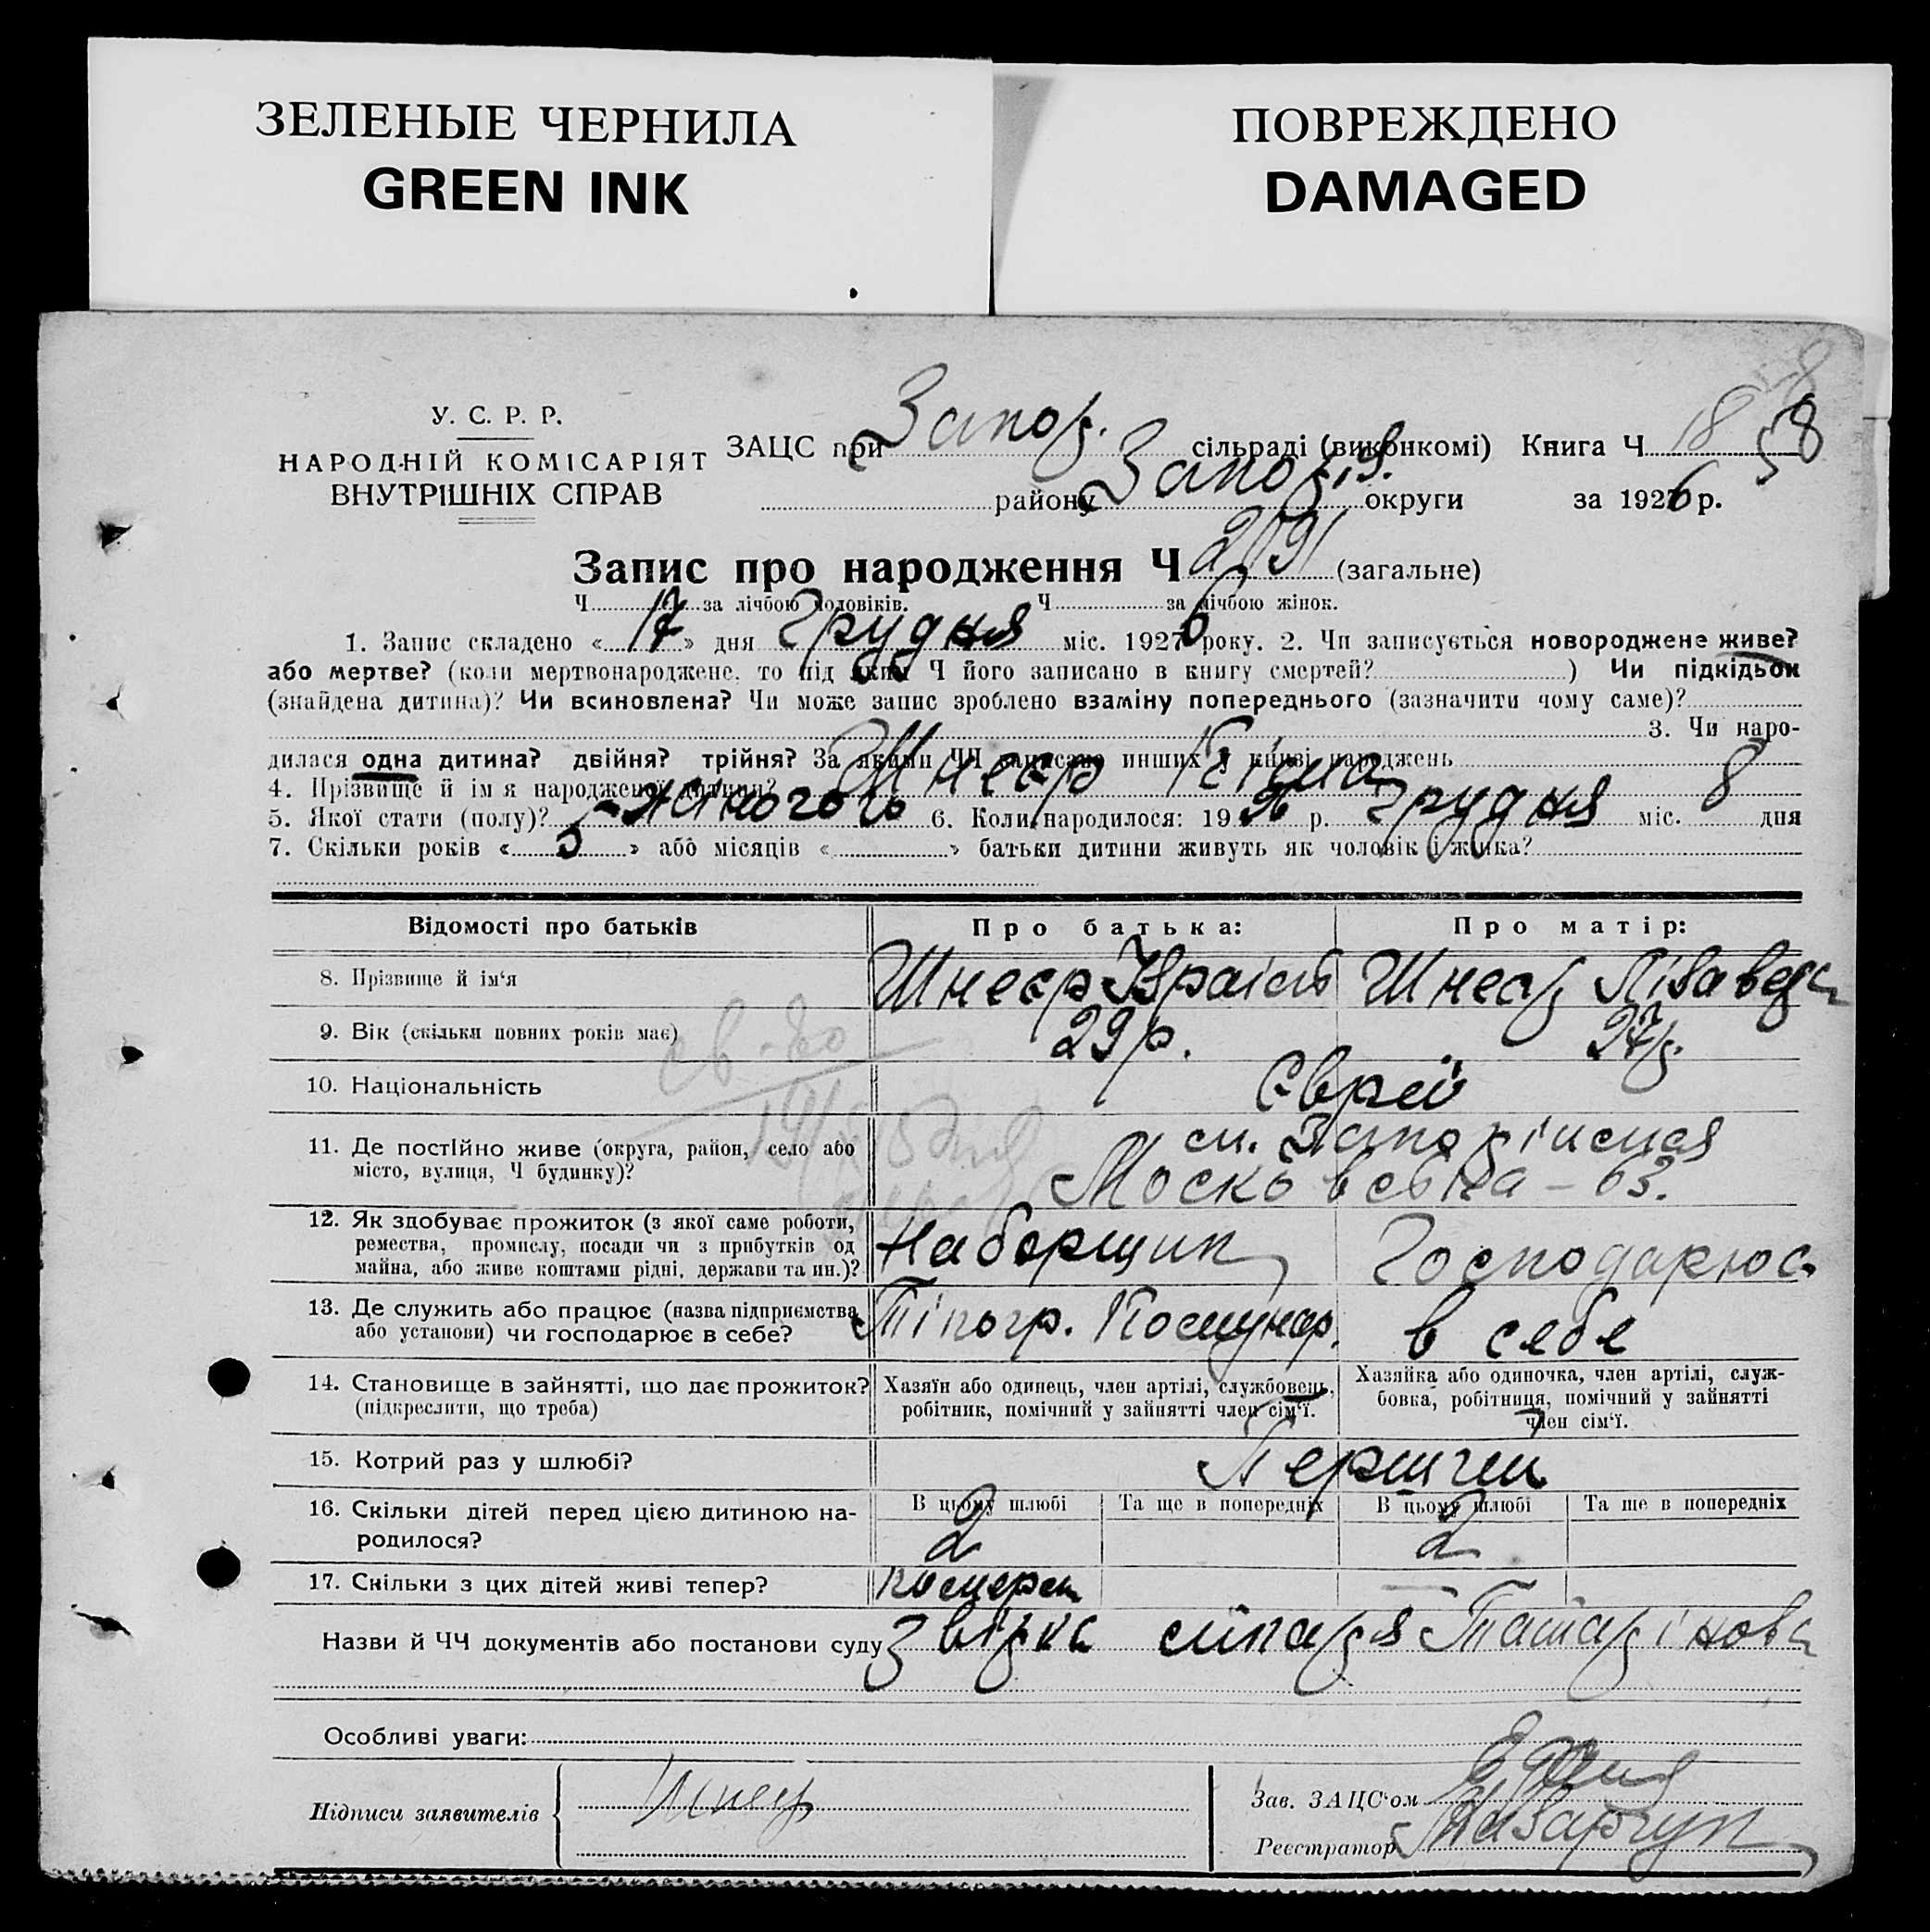 ЗЕЛЕНЫЕ ЧЕРНИЛА
GREEN INK
ПОВРЕЖДЕНО
DAMAGED
У. С. Р. Р.
НАРОДНІЙ КОМІСАРІЯТ
ВНУТРІШНІХ СПРАВ
ЗАЦС при Запор. сільраді (виконкомі) Книга Ч 18 58
району Запоріз. округи за 1926 р.
Запис про народження Ч 2191 (загальне)
Ч за лічбою чоловіків. Ч за лічбою жінок.
1. Запис складено « 17 » дня Грудня міс. 1926 року. 2. Чи записується новороджене живе?
або мертве? (коли мертвонароджене, то під яким Ч його записано в книгу смертей? ) Чи підкідьок
(знайдена дитина)? Чи всиновлена? Чи може запис зроблено взаміну попереднього (зазначити чому саме)?
3. Чи наро-
дилася одна дитина? двійня? трійня? За якими ЧЧ записано инших у книзі народжень
4. Прізвище й ім я народженої дитини? Шнеєр
5. Якої стати (полу)? 6. Коли народилося: 19 26 р. Грудня міс. 8 дня
7. Скільки років « 5 » або місяців « » батьки дитини живуть як чоловік і жінка?
Відомості про батьків
Про батька:
Про матір:
8. Прізвище й ім‘я Шнеєр Ізраіль Шнеєр Лізавета
9. Вік (скільки повних років має) 29 р. 27 р.
10. Національність Єврей
11. Де постійно живе (округа, район, село або
місто, вулиця, Ч будинку)?
м.
Московська – 63.
12. Як здобуває прожиток (з якої саме роботи,
ремества, промислу, посади чи з прибутків од
майна, або живе коштами рідні, держави та ин.)?
Наборщик
Господарює
13. Де служить або працює (назва підприємства
або установи) чи господарює в себе?
Тіпогр. Комунар.
в себе
14. Становище в зайнятті, що дає прожиток?
(підкреслити, що треба)
Хазяїн або одинець, член артілі, службовець,
робітник, помічний у зайнятті член сім‘ї.
Хазяйка або одиночка, член артілі, служ-
бовка, робітниця, помічний у зайнятті
член сім‘ї.
15. Котрий раз у шлюбі? Перший
16. Скільки дітей перед цією дитиною на-
родилося?
В цьому шлюбі Та ще в попередніх В цьому шлюбі Та ще в попередніх
2 2
17. Скільки з цих дітей живі тепер?
Назви й ЧЧ документів або постанови суду
Особливі уваги:
Підписи заявителів Шнеєр
Зав. ЗАЦС‘ом
Реєстратор